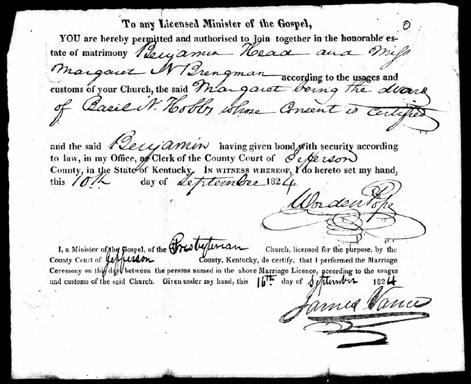 To any Licensed Minister of the Gospel,
YOU are hereby permitted and authorised to join together in the honorable es-
tate of matrimony Benjamin Head and Miss
Margaret N Brengman according to the usages and
customs of your Church, the said Margaret being the
of N. Hobby whose Consent is certified
and the said Benjamin having given bond with security according
to law, in my Office, as Clerk of the County Court of Jefferson
County, in the State of Kentucky. IN WITNESS WHEREOF, I do hereto set my hand,
this 10th day of September 1824
Worden Pope
I, a Minister of the Gospel, of the Presbyterian Church, licensed for the purpose, by the
County Court of Jefferson County, Kentucky, do certify, that I performed the Marriage
Ceremony on this day between the persons named in the above Marriage Licence, according to the usages
and customs of the said Church. Given under my hand, this 16th day of September 1824
James Vance